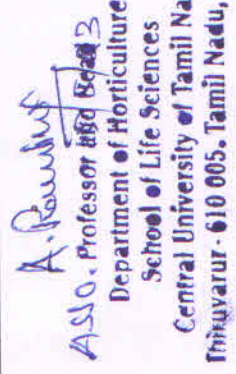 Asso. Professor and Head
Department of Horticulture
School of Life Sciences
Central University of Tamil Na
Thiruvarur - 610 005. Tamil Nadu,